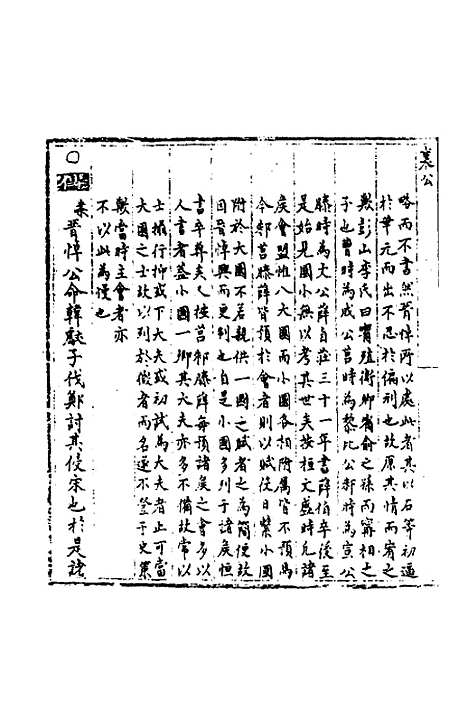 襄公
略而不書然晉悼所以處此者其以石等初逼
於華元而出不忍於偪利也故原其情而宥之
歟彭山李氏曰甯殖衛卿甯俞之孫而甯相之
子也曹時為成公莒時為黎比公邾時為宣公
滕時為文公薛自莊三十一年書薛伯卒後至
是始見國小無以考其世矣按桓文盛時凡諸
侯會盟惟八大國而小國各相附屬皆不預焉
今邾莒滕薛皆預於會者則以賦役日繁小國
附於大國不若親供一國之賦者之為簡便故
因晉悼興而更制也自是小國多列于諸侯恒
書卒葬矣又按莒邾滕薛每預諸侯之會多以
人書者蓋小國一卿其大夫亦多不備故常以
士攝行抑或下大夫或初試為大夫者止可當
大國之士故以列於微者而名遂不登于史策
歟當時主會者亦
不以此為慢也
○傳
來晉悼公命韓厥子伐鄭討其侵宋也於是諸